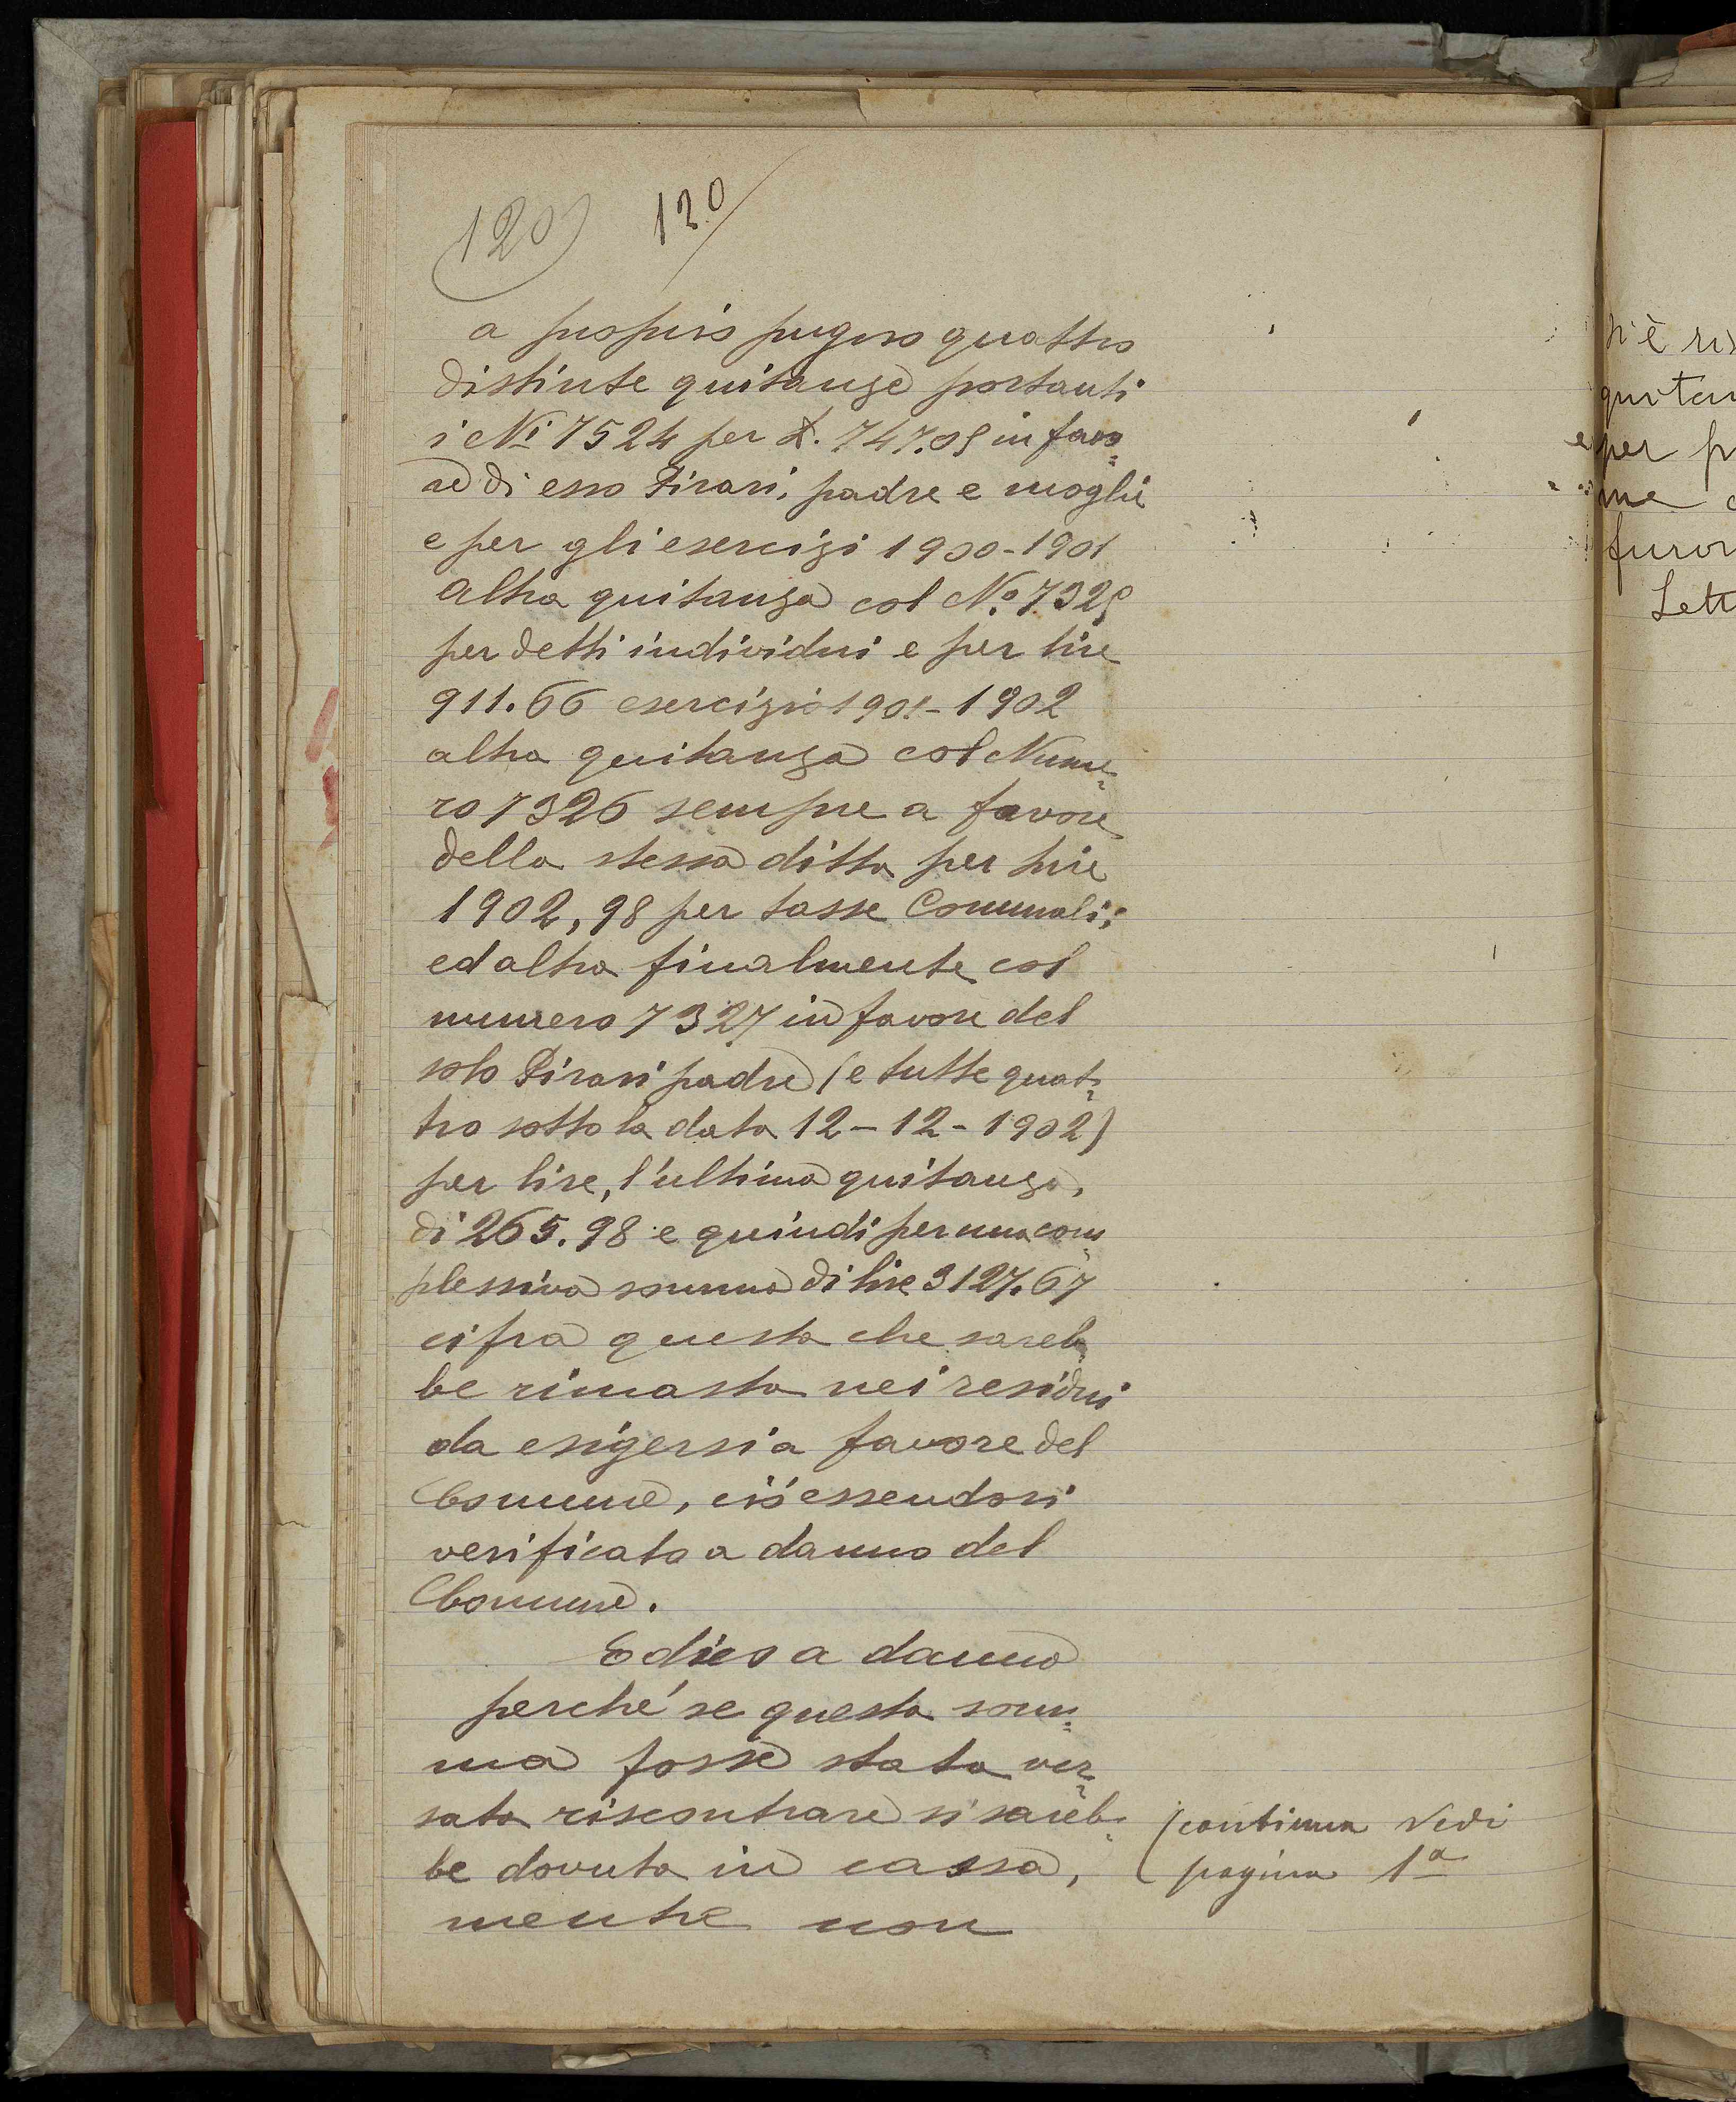 120) 120/
a proprio pugno quattro
distinte quitanze portanti
i Ni 7524 per £. 747.05 in favo=
re di esso Pirari, padre e moglie
e per gli esercizi 1900-1901
altra quitanza col No. 7325
per detti individui e per lire
911.66 esercizio 1901-1902
altra quitanza col Nume=
ro 7326 sempre a favore
della stessa ditta per lire
1902,98 per tasse Comunali;
ed altra finalmente col
numero 7327 in favore del
solo Pirari padre (e tutte quat=
tro sotto la data 12-12-1902)
per lire, l'ultima quitanza,
di 265.98 e quindi per una com=
plessiva somma di lire 3127.67
cifra questa che sareb=
be rimasta nei residui
da esigersi a favore del
Comune, ciò essendosi
verificato a danno del
Comune.
E dico a danno
perché se questa som=
ma fosse stata ver=
sata riscontrare si sareb=
be dovuta in cassa,
mentre non
(continua Vedi
pagina 1a
quitan
per p
me
furon
Lett